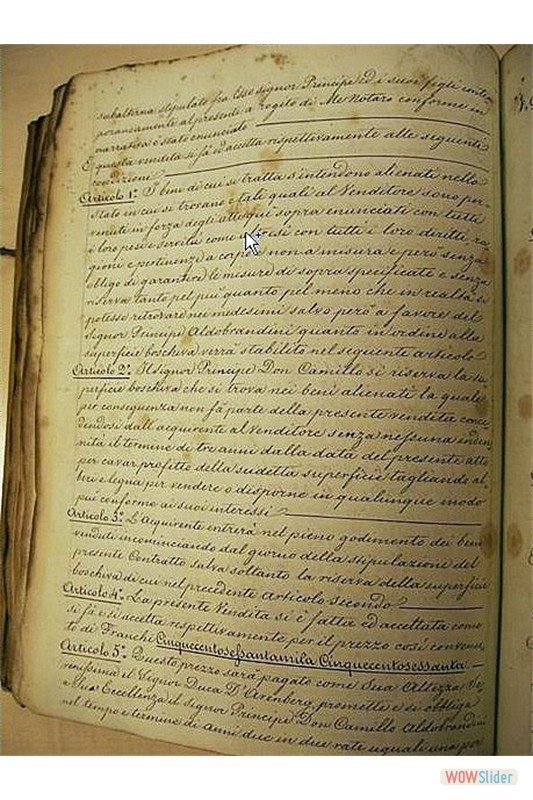 subalterna stipulato fra Esso signor Principe ed i suoi figli contem
poraneamente al presente a rogito di Me Notaro conforme in
narrativa è stato enunciato
E questa vendita si fà ed accetta rispettivamente alle seguenti
condizioni
Articolo 1º. I beni di cui si tratta s'intendono alienati nello
stato in cui si trovano e tali quali al Venditore sono per-
venuti in forza degli atti qui sopra enunciati con tutti
i loro pesi e servitù come altresì con tutti i loro diritti, ra
gioni e pertinenze a corpo e non a misura e però senza
obligo di garantire le misure di sopra specificate e senza
riserva tanto pel più quanto pel meno che in realtà si
potesse ritrovare nei medesimi salvo però a favore del
Signor Principe Aldobrandini quanto in ordine alla
superficie boschiva verrà stabilito nel seguente articolo
Articolo 2º. Il signor Principe Don Camillo si riserva la su
perficie boschiva che si trova nei beni alienati la quale
per conseguenza non fà parte della presente vendita conce
dendosi dall'acquirente al Venditore senza nessuna inden
nità il termine di tre anni dalla data del presente atto
per cavar profitto della sudetta superficie tagliando al
beri e legna per vendere o disporne in qualunque modo
più conforme ai suoi interessi
Articolo 3º. L'Aquirente entrerà nel pieno godimento dei beni
venduti incominciando dal giorno della stipulazione del
presente Contratto salva soltanto la riserva della superficie
boschiva di cui nel precedente Articolo secondo
Articolo 4º. La presente Vendita si è fatta ed accettata come
si fà e si accetta respettivamente per il prezzo così convenu
to di Franchi Cinquecentosessantamila Cinquecentosessanta
Articolo 5º. Questo prezzo sarà pagato come Sua Altezza Se
renissima il Signor Duca D'Arenberg promette e si obbliga
a Sua Eccellenza il signor Principe Don Camillo Aldobrandini
nel tempo e termine di anni due in due rate uguali una per
WOWSlider